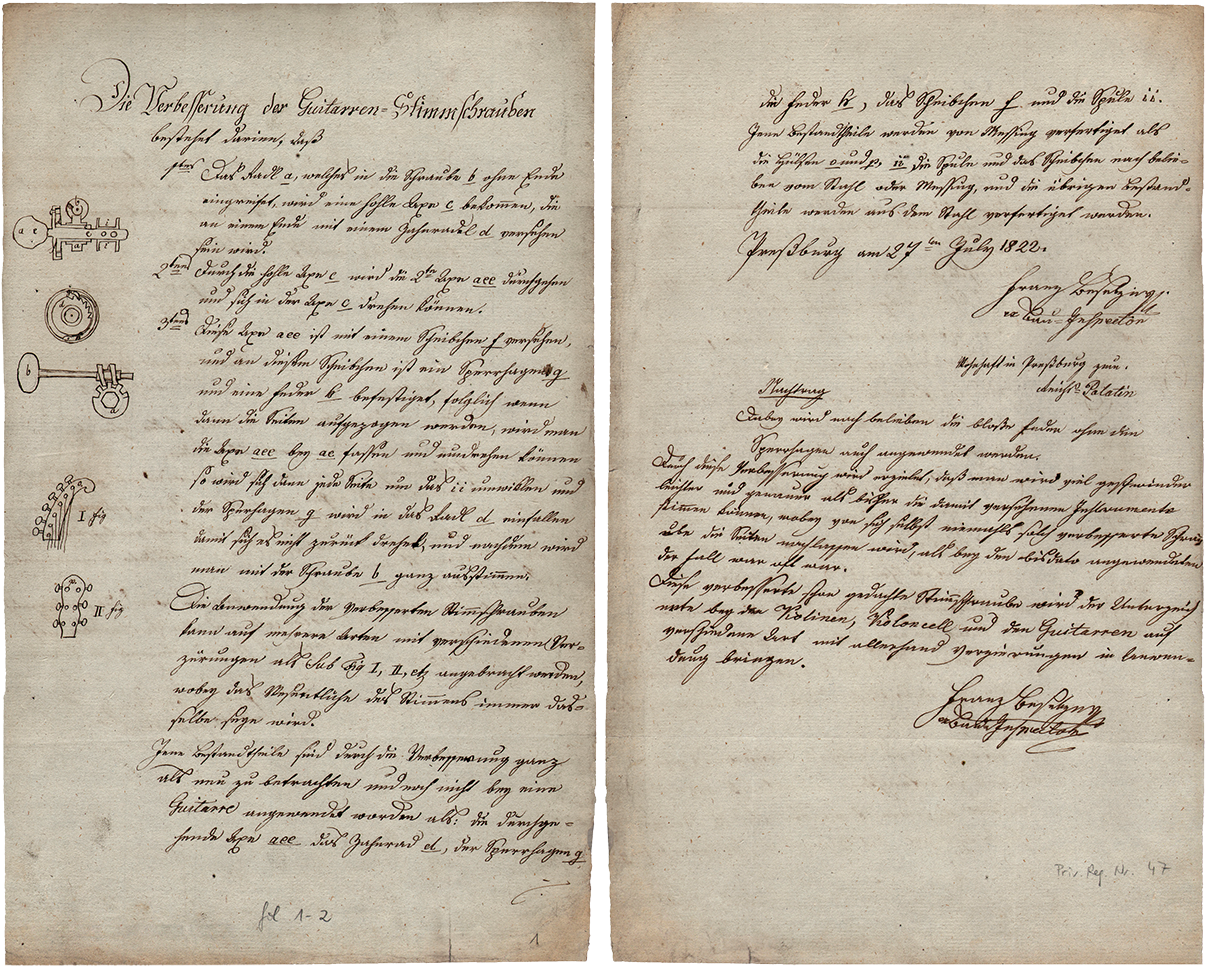 Die Verbesserung der Guitarren-Stimmschrauben
bestehet darien, daß
1tens Das Radl a, welches in die Schraube b ohne Ende
eingreifet, wird eine hohle Axe c bekomen, die
an einem Ende mit einem Zahnradel d versehen
sein wird.
2tens Durch die hohle Axe c wird die 2te Axe aee durchgehen
und sich in der Axe c drehen können.
3tens Diese Axe aee ist mit einem Scheibchen f versehen,
und an diesem Scheibchen ist ein Sperrhagen g
und eine Feder k befestiget, folglich wenn
dann die Seiten aufgezogen werden, wird man
die Axe aee bey ae fassen und umdrehen können
so wird sich dann jede Seite um das ii umwiklen und
der Sperrhagen g wird in das Radl d einfallen
damit sich es nicht zurück drehet, und nachdem wird
man mit der Schraube b ganz ausstimmen.
Die Anwendung der verbesserten Stimmschrauben
kann auf mehrere Arten mit verschiedenen Ver-
zürungen als Sub Fig I, II, etz angebracht werden,
wobey das Wesentliche des Stimmens immer das-
selbe seyn wird.
Jene Bestandtheile sind durch die Verbesserung ganz
als neu zu betrachten und noch nicht bey eine
Guitarre angewendet worden als: die durchge-
hende Axe aee das Zahnrad d, der Sperrhagen g
a e
b
a
c
i
d
b
a
I fig
II fig
fol 1-2
1
die Feder k, das Scheibchen f und die Spule ii.
Jene Bestandtheile werden von Messing verfertiget als
die Hülsen o und p, die Spule und das Scheibchen nach belie-
ben vom Stahl oder Messing, und die übrigen Bestand-
theile werden aus dem Stahl verfertiget werden.
Preßburg am 27ten July 1822.
Franz
Bau-Inspector
Wohnhaft in Preßburg zum
Palatin
Nachtrag
Dabey wird nach belieben die bloße Feder ohne den
Sperrhagen auch angewendet werden.
Durch diese Verbesserung wird erzielet, daß man wird viel geschwinder
leichter und genauer als bisher die damit versehenen Instrumente
stimen können, wobey von sich selbst niemahls solch verbesserte Schrau
be die Seiten nachlassen wird, als bey den bisdato angewendeten
der Fall war oft war.
Diese verbesserte schon gedachte Stimschraube wird der Unterzeich
nete bey den Violinen, Violoncell und den Guitarren auf
verschiedene Art mit allerhand Verzierungen in Anwen-
dung bringen.
Franz
Bau-Inspector
Priv. Reg. Nr. 47